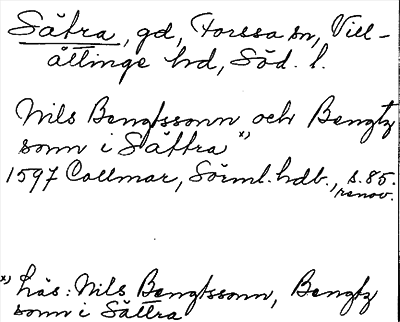 Sätra, gd, Forssa sn, Vill-
åttinge hd, Söd. l.
Nils Bengtssonn och Bengtz
sonn i Sättra x)
1597 Collmar, Sörml. hdb., s. 85.
renov.
x) Läs: Nils Bengtssonn, Bengtz
sonn i Sättra